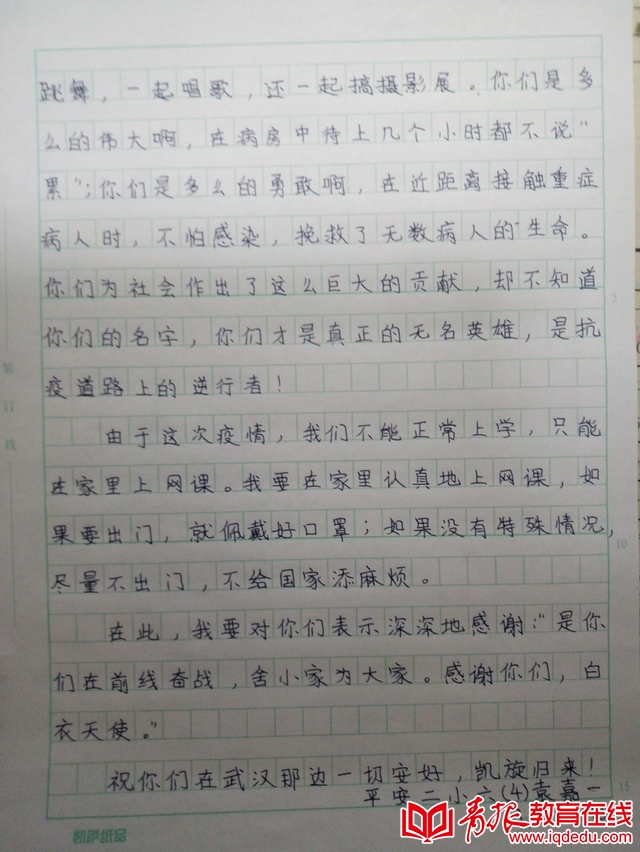 跳舞，一起唱歌，还一起搞摄影展。你们是多
么的伟大啊，在病房中待上几个小时都不说“
累”；你们是多么的勇敢啊，在近距离接触重症
病人时，不怕感染，挽救了无数病人的生命。
你们为社会作出了这么巨大的贡献，却不知道
你们的名字，你们才是真正的无名英雄，是抗
疫道路上的逆行者！
由于这次疫情，我们不能正常上学，只能
在家里上网课。我要在家里认真地上网课，如
果要出门，就佩戴好口罩；如果没有特殊情况，
尽量不出门，不给国家添麻烦。
在此，我要对你们表示深深地感谢：“是你
们在前线奋战，舍小家为大家。感谢你们，白
衣天使。”
祝你们在武汉那边一切安好，凯旋归来！
平安二小六(4)袁嘉一
装订线
5
10
15
青报教育在线
www.iqdedu.com